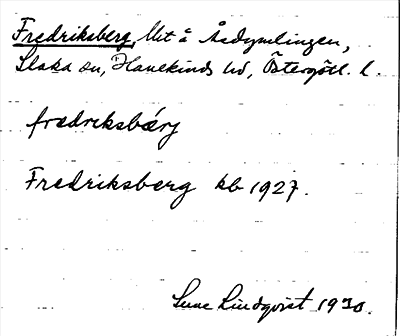 Fredriksberg, Ut å Åsdymlingen,
Slaka sn, Hanekinds hd, Östergötl. l.
fredriksbærj
Fredriksberg kb 1927.
Sune Lindqvist 1930.